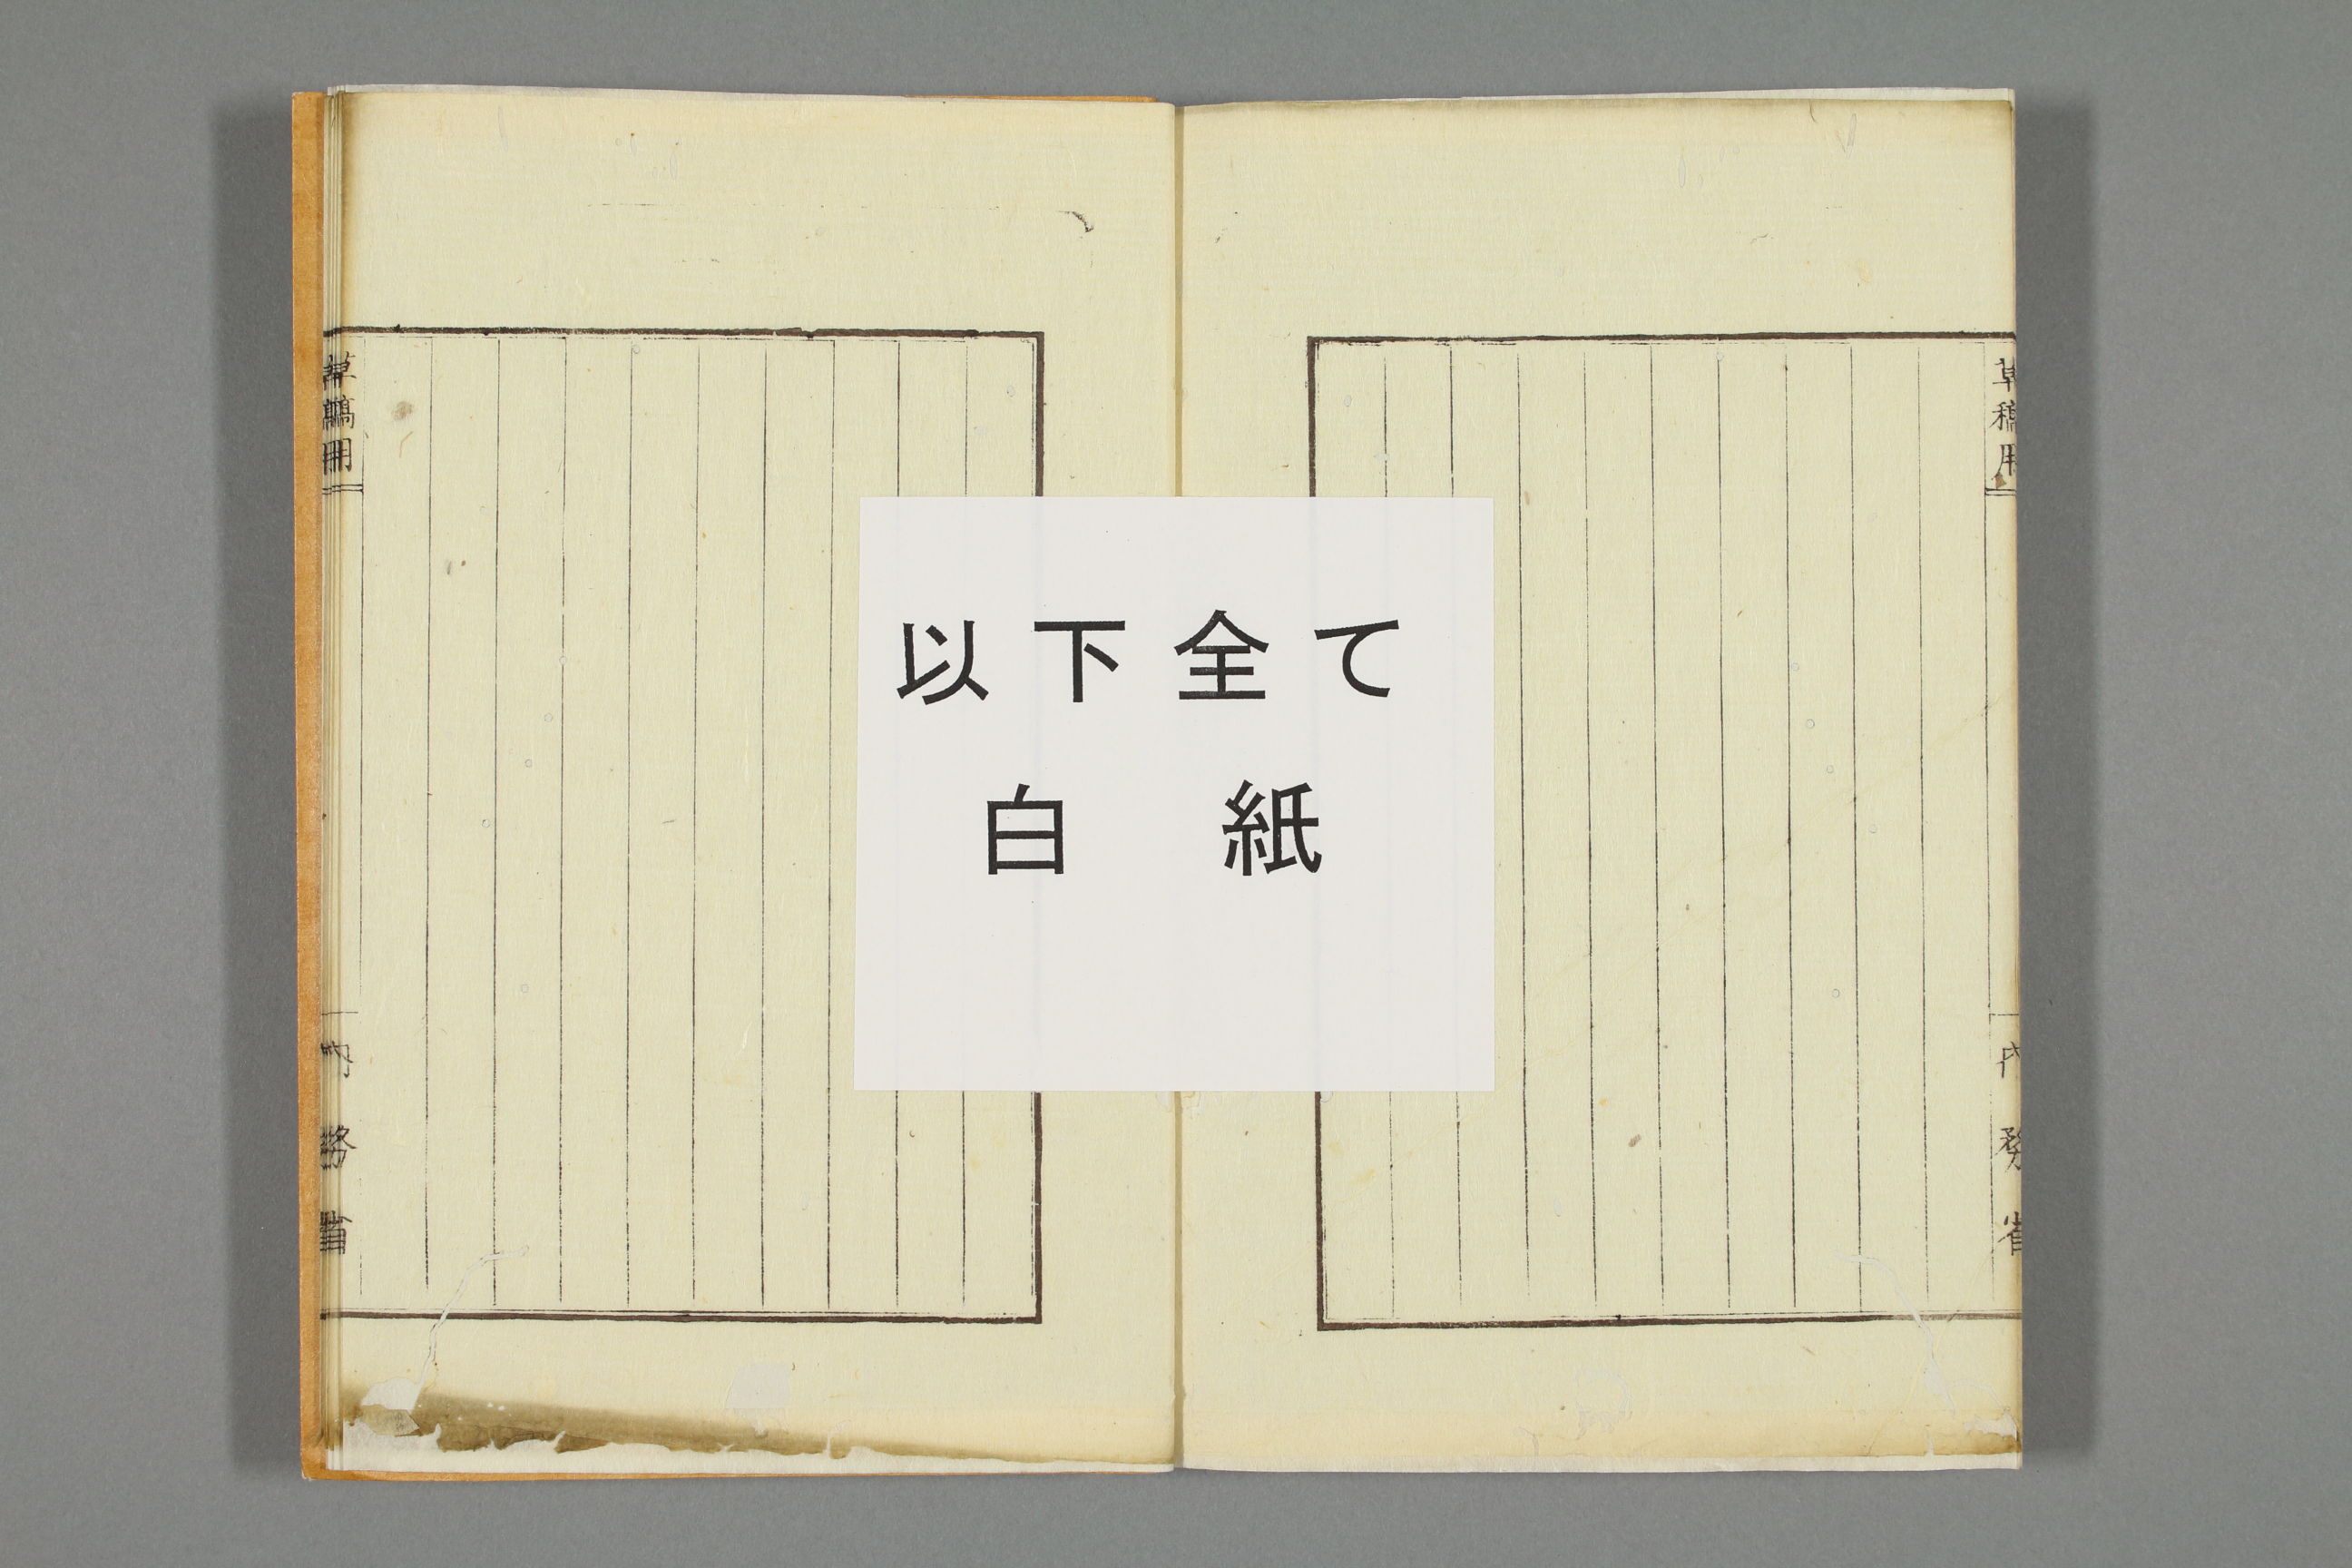 以下全て
白紙
草稿用
内務省
草稿用
内務省